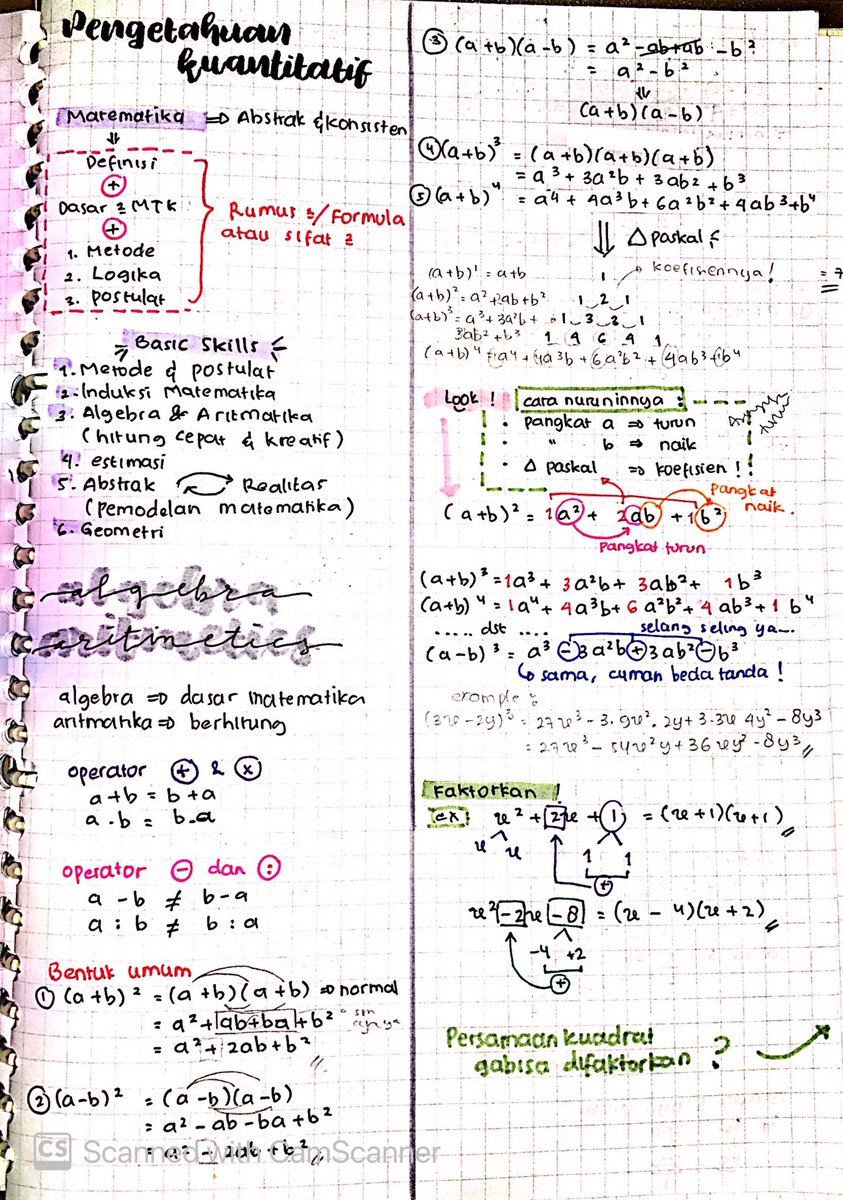 Pengetahuan
kuantitatif
Matematika ⇒ Abstrak & konsisten
⇓
Definisi
+
Dasar² MTK
+
1. Metode
2. Logika
3. postulat
Rumus²/Formula
atau sifat²
Basic Skills
1. Metode & postulat
2. Induksi Matematika
3. Algebra & Aritmatika
(hitung cepat & kreatif)
4. estimasi
5. Abstrak Realitas
(pemodelan matematika)
6. Geometri
algebra
aritmetics
algebra ⇒ dasar matematika
aritmatika ⇒ berhitung
operator + & x
a+b = b+a
a . b = b.a
operator − dan :
a - b ≠ b - a
a : b ≠ b : a
Bentuk umum
① (a+b)² = (a+b)(a+b) ⇒ normal
= a² + ab+ba + b²
= a² + 2ab + b²
② (a-b)² = (a-b)(a-b)
= a² - ab - ba + b²
= a² - 2ab + b²
③ (a+b)(a-b) = a² -ab+ab - b²
= a² - b²
⇓
(a+b)(a-b)
④ (a+b)³ = (a+b)(a+b)(a+b)
= a³ + 3a²b + 3ab² + b³
⑤ (a+b)⁴ = a⁴ + 4a³b + 6a²b² + 4ab³ + b⁴
⇓ △ paskal
(a+b)¹ = a+b 1 koefisiennya!
(a+b)² = a²+2ab+b² 1 2 1
(a+b)³ = a³+3a²b + 1 3 3 1
3ab²+b³ 1 4 6 4 1
(a+b)⁴ = 1a⁴ + 4a³b + 6a²b² + 4ab³ + 1b⁴
Look! cara nuruninnya :
• pangkat a ⇒ turun
• " b ⇒ naik
• △ paskal ⇒ koefisien !!
pangkat
naik.
(a+b)² = 1a² + 2ab + 1b²
pangkat turun
(a+b)³ = 1a³ + 3a²b + 3ab² + 1b³
(a+b)⁴ = 1a⁴ + 4a³b + 6a²b² + 4ab³ + 1b⁴
..... dst .... selang seling ya~
(a-b)³ = a³ - 3a²b + 3ab² - b³
↳ sama, cuman beda tanda !
example :
(3x-2y)³ = 27x³ - 3.9x².2y + 3.3x 4y² - 8y³
= 27x³ - 54x²y + 36xy² - 8y³
Faktorkan !
ex x² + 2x + 1 = (x+1)(x+1)
x x 1 1
+
x² -2x -8 = (x - 4)(x+2)
-4 +2
+
Persamaan kuadrat
gabisa difaktorkan ?
CS Scanned with CamScanner